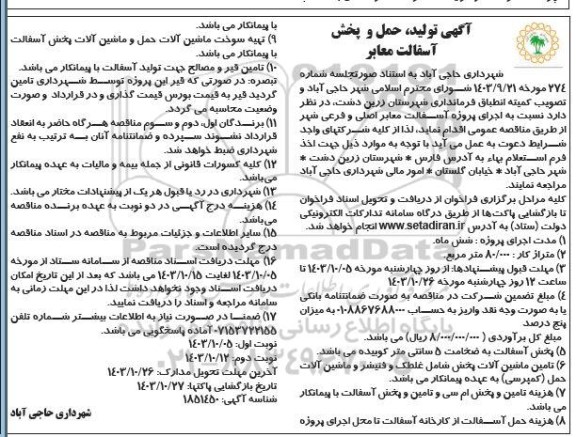 آگهی تولید، حمل و پخش
آسفالت معابر
شهرداری حاجی آباد به استناد صورتجلسه شماره
۲۷۴ مورخه ۱۴۰۳/۹/۲۱ شورای محترم اسلامی شهر حاجی آباد و
تصویب کمیته انطباق فرمانداری شهرستان زرین دشت، در نظر
دارد نسبت به اجرای پروژه آسفالت معابر اصلی و فرعی شهر
از طریق مناقصه عمومی اقدام نماید، لذا از کلیه شرکتهای واجد
شرایط دعوت به عمل می آید با توجه به موارد ذیل جهت اخذ
فرم استعلام بهاء به آدرس فارس * شهرستان زرین دشت *
شهر حاجی آباد * خیابان گلستان * امور مالی شهرداری حاجی آباد
مراجعه نمایند.
کلیه مراحل برگزاری فراخوان از دریافت و تحویل اسناد فراخوان
تا بازگشایی پاکت‌ها از طریق درگاه سامانه تدارکات الکترونیکی
دولت (ستاد) به آدرس www.setadiran.ir انجام خواهد شد.
۱) مدت اجرای پروژه : شش ماه.
۲) متراژ کار : ۸۰/۰۰۰ متر مربع.
۳) مهلت قبول پیشنهادها: از روز چهارشنبه مورخه ۱۴۰۳/۱۰/۰۵ تا
ساعت ۱۲ روز چهارشنبه مورخه ۱۴۰۳/۱۰/۲۶
۴) مبلغ تضمین شرکت در مناقصه به صورت ضمانتنامه بانکی
یا به صورت وجه نقد واریز به حساب به میزان
پنج درصد
مبلغ کل برآوردی (۸/۰۰۰/۰۰۰/۰۰۰ ریال) می باشد.
۵) پخش آسفالت به ضخامت ۵ سانتی متر کوبیده می باشد.
۶) تامین ماشین آلات پخش شامل غلطک و فنیشر و ماشین آلات
حمل (کمپرسی) به عهده پیمانکار می باشد.
۷) هزینه تامین و پخش ام سی و تامین و پخش آسفالت با پیمانکار
می باشد.
۸) هزینه حمل آسفالت از کارخانه آسفالت تا محل اجرای پروژه
با پیمانکار می باشد.
۹) تهیه سوخت ماشین آلات حمل و ماشین آلات پخش آسفالت
با پیمانکار می باشد.
۱۰) تامین قیر و مصالح جهت تولید آسفالت با پیمانکار می باشد.
تبصره: در صورتی که قیر این پروژه توسط شهرداری تامین
گردید قیر به قیمت بورس قیمت گذاری و در قرارداد و صورت
وضعیت محاسبه می گردد.
۱۱) برندگان اول، دوم و سوم مناقصه هر گاه حاضر به انعقاد
قرارداد نشوند سپرده و ضمانتنامه آنان به ترتیب به نفع
شهرداری ضبط خواهد شد.
۱۲) کلیه کسورات قانونی از جمله بیمه و مالیات به عهده پیمانکار
می‌باشد.
۱۳) شهرداری در رد یا قبول هر یک از پیشنهادات مختار می باشد.
۱۴) هزینه درج آگهی در دو نوبت به عهده برنده مناقصه
می‌باشد.
۱۵) سایر اطلاعات و جزئیات مربوط به مناقصه در اسناد مناقصه
درج گردیده است.
۱۶) مهلت دریافت اسناد مناقصه از سامانه ستاد از مورخه
۱۴۰۳/۱۰/۰۵ لغایت ۱۴۰۳/۱۰/۱۵ می باشد که بعد از این تاریخ امکان
دریافت اسناد وجود نخواهد داشت لذا در این مهلت زمانی به
سامانه مراجعه و اسناد را دریافت نمایید.
۱۷) ضمنا در صورت نیاز به اطلاعات بیشتر شماره تلفن
۰۷۱۵۳۷۲۲۱۵۵ آماده پاسخگویی می باشد.
نوبت اول: ۱۴۰۳/۱۰/۰۵
نوبت دوم: ۱۴۰۳/۱۰/۱۲
آخرین مهلت تحویل مدارک: ۱۴۰۳/۱۰/۲۶
تاریخ بازگشایی پاکتها: ۱۴۰۳/۱۰/۲۷
شناسه آگهی: ۱۸۵۱۴۵۰
شهرداری حاجی آباد